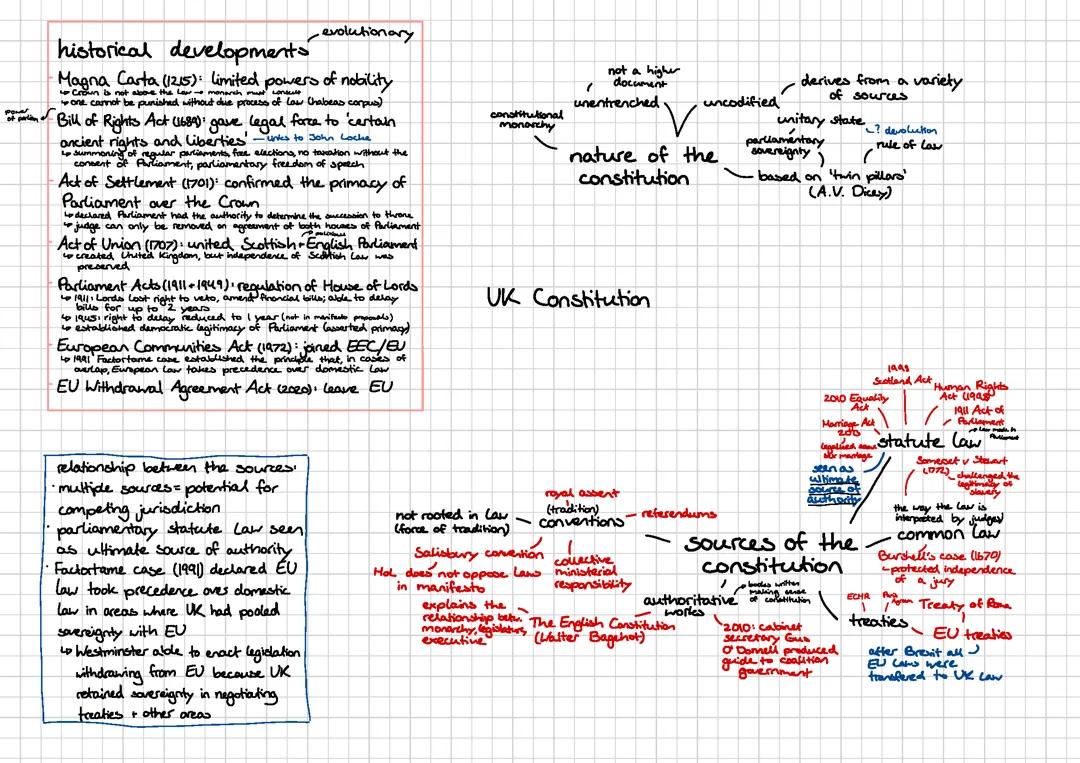 evolutionary
historical developments
Magna Carta (1215): limited powers of nobility
↳ Crown is not above the law → monarch must consult
↳ one cannot be punished without due process of law (habeas corpus)
power of parliam
Bill of Rights Act (1689): gave legal force to 'certain
ancient rights and liberties' — links to John Locke
↳ summoning of regular parliaments, free elections, no taxation without the
consent of Parliament, parliamentary freedom of speech
Act of Settlement (1701): confirmed the primacy of
Parliament over the Crown
↳ declared Parliament had the authority to determine the succession to throne
↳ judge can only be removed on agreement of both houses of Parliament
Act of Union (1707): united Scottish + English Parliament
↳ created United Kingdom, but independence of Scottish Law was
preserved
Parliament Acts (1911 + 1949): regulation of House of Lords
↳ 1911: Lords lost right to veto, amend financial bills; able to delay
bills for up to 2 years
↳ 1945: right to delay reduced to 1 year (not in manifesto proposals)
↳ established democratic legitimacy of Parliament (asserted primacy)
European Communities Act (1972): joined EEC/EU
↳ 1991 Factortame case established the principle that, in cases of
overlap, European Law takes precedence over domestic law
EU Withdrawal Agreement Act (2020): leave EU
not a higher
document
unentrenched
constitutional
monarchy
uncodified
derives from a variety
of sources
unitary state
? devolution
parliamentary
sovereignty
rule of law
nature of the
constitution
based on 'twin pillars'
(A.V. Dicey)
UK Constitution
relationship between the sources:
· multiple sources = potential for
competing jurisdiction
· parliamentary statute law seen
as ultimate source of authority
· Factortame case (1991) declared EU
law took precedence over domestic
law in areas where UK had pooled
sovereignty with EU
↳ Westminster able to enact legislation
withdrawing from EU because UK
retained sovereignty in negotiating
treaties + other areas
sources of the
constitution
royal assent
(tradition)
conventions
referendums
not rooted in law
(force of tradition)
Salisbury convention
HoL does not oppose laws
in manifesto
collective
ministerial
responsibility
authoritative
works
books written
making sense
of constitution
The English Constitution
(Walter Bagehot)
explains the
relationship betw
monarchy, legislature,
executive
2010: cabinet
secretary Gus
O'Donnell produced
guide to coalition
government
1998
Scotland Act
Human Rights
Act (1998)
2010 Equality
Act
1911 Act of
Parliament
Marriage Act
2013
legalised same
sex marriage
statute law
→ law made in
Parliament
seen as
ultimate
source of
authority
Somerset v Stewart
(1772)
challenged the
legitimacy of
slavery
the way the law is
interpreted by judges)
common law
Bushell's case (1670)
→ protected independence
of a jury
treaties
ECHR
Treaty of Rome
EU treaties
after Brexit all
EU laws were
transfered to UK law